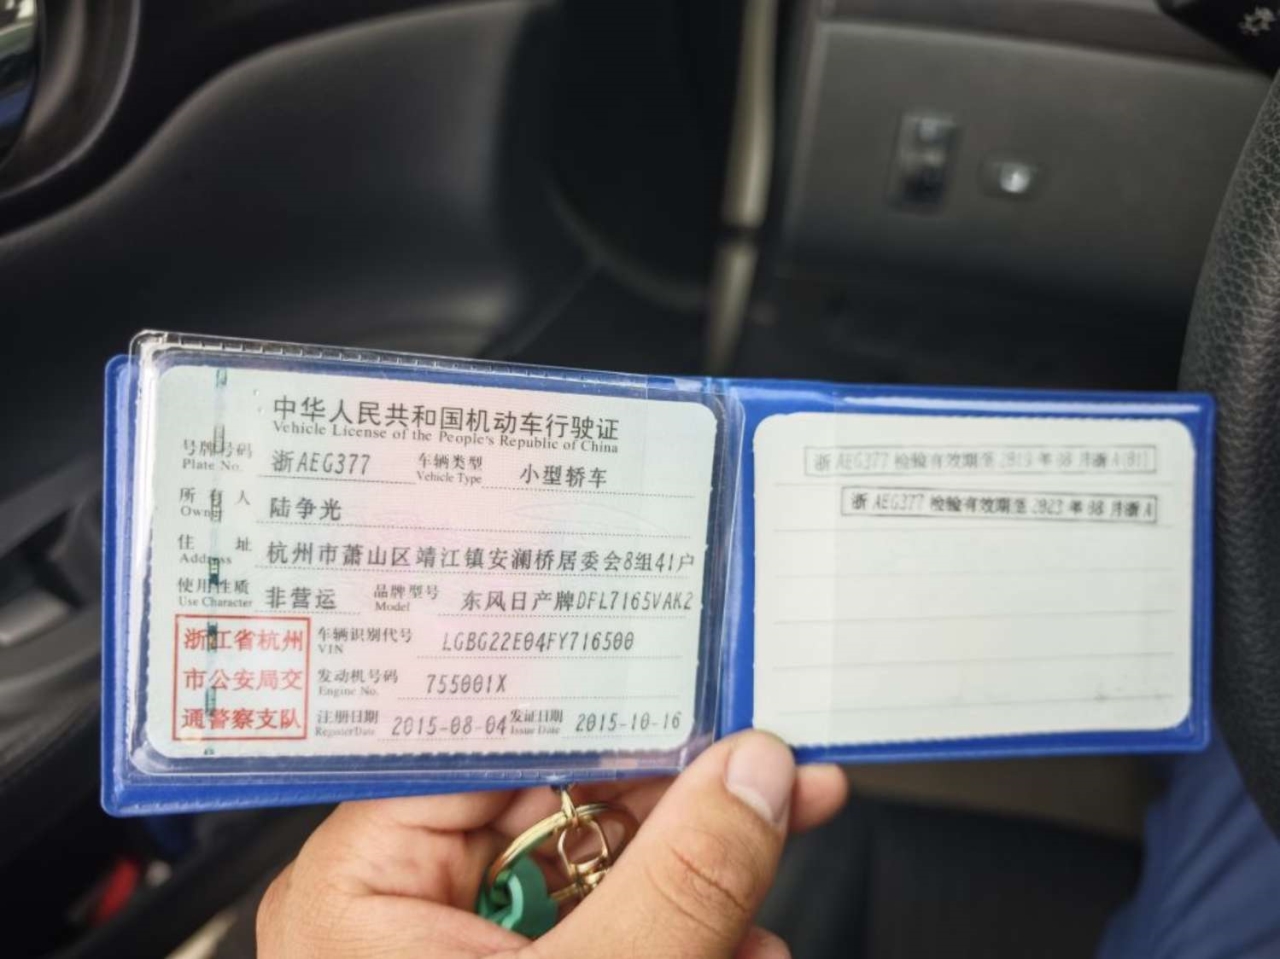 中华人民共和国机动车行驶证
Vehicle License of the People's Republic of China
号牌号码 浙AEG377 车辆类型 小型轿车
Plate No. Vehicle Type
所有人 陆争光
Owner
住址 杭州市萧山区靖江镇安澜桥居委会8组41户
Address
使用性质 非营运 品牌型号 东风日产牌DFL7165VAK2
Use Character Model
浙江省杭州
市公安局交
通警察支队
车辆识别代号 LGBG22E04FY716500
VIN
发动机号码 755001X
Engine No.
注册日期 2015-08-04 发证日期 2015-10-16
Register Date Issue Date
浙AEG377 检验有效期至 2019年08月浙A(01)
浙AEG377 检验有效期至 2023年08月浙A